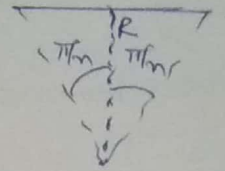 R
π/n π/n